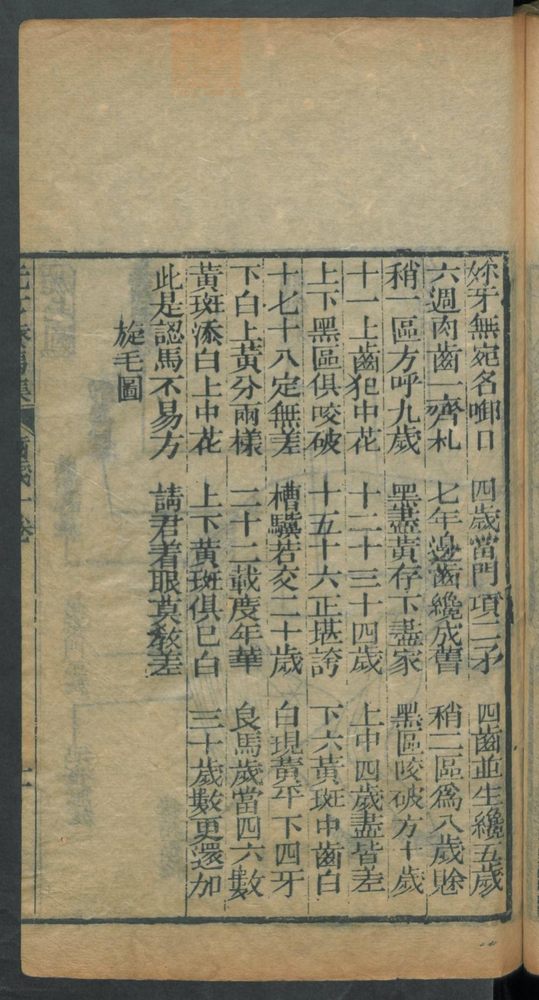 妳牙無宛名啣口 四歲當門項二牙 四齒並生纔五歲
六週肉齒一齊札 七年邊齒纔成舊 稍二區爲八歲賒
稍一區方呼九歲 黑盡黃存下盡家 黑區咬破方十歲
十一上齒犯中花 十二十三十四歲 上中四歲盡皆差
上下黑區俱咬破 十五十六正堪誇 下六黃斑中齒白
十七十八定無差 槽驥若交二十歲 白現黃平下四牙
下白上黃分兩樣 二十二載度年華 良馬歲當四六數
黃斑添白上中花 上下黃斑俱巳白 三十歲數更還加
此是認馬不易方 請君着眼莫教差
旋毛圖